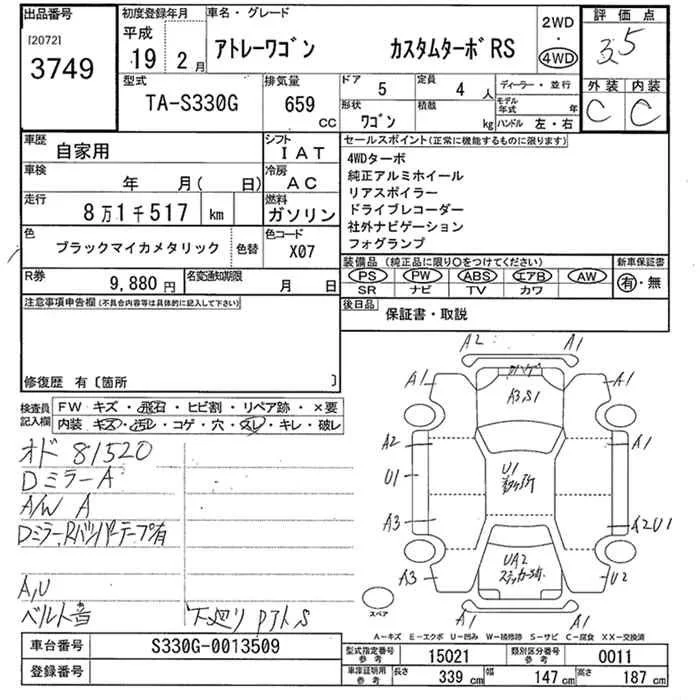 出品番号
[2072]
3749
初度登録年月
平成
19 2 月
車名・グレード
アトレーワゴン カスタムターボRS
2WD
・
4WD
評価点
3.5
外装 内装
C C
型式
TA-S330G
排気量
659 CC
ドア 5
定員 4 人
ディーラー・並行
形状
ワゴン
積載 kg
モデル年式 年
ハンドル 左・右
車歴 自家用
シフト IAT
車検 年 月( 日)
冷房 AC
走行 8万1千517 km
燃料 ガソリン
色 ブラックマイカメタリック 色替
色コード X07
R券 9,880円
名変通知期限 月 日
セールスポイント(正常に機能するものに限ります)
4WDターボ
純正アルミホイール
リアスポイラー
ドライブレコーダー
社外ナビゲーション
フォグランプ
装備品(純正品に限り○をつけてください)
新車保証書
PS PW ABS エアB AW
SR ナビ TV カワ
有・無
後日品 保証書・取説
注意事項申告欄(不具合内容等は具体的に記入して下さい)
修復歴 有〔箇所 〕
検査員記入欄
FW キズ・飛石・ヒビ割・リペア跡・×要
内装 キズ・汚レ・コゲ・穴・スレ・キレ・破レ
オド 81520
DミラーA
A/W A
Dミラー、Rバンパーテープ有
A,U
ベルト音
下廻り PアトS
A2 A1
A1 A1
A3,S1
A2 A1
U1
U1
A3 A2U1
UA2
A3 U2
A1 A1
スペア
A-キズ E-エクボ U-凹み W-補修跡 S-サビ C-腐食 XX-交換済
車台番号 S330G-0013509
登録番号
型式指定番号 参考 15021
類別区分番号 参考 0011
車庫証明用 参考 長さ 339 cm 幅 147 cm 高さ 187 cm